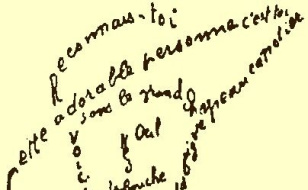 Reconnais-toi
Cette adorable personne c'est toi
Sous le grand chapeau canotier
Œil
Voici
bouche